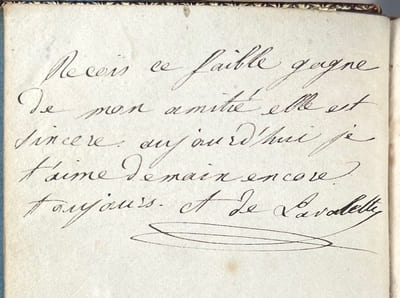 Recois ce faible gagne
de mon amitié elle est
sincere. aujourd'hui je
t'aime demain encore.
toujours. A de Lavalette